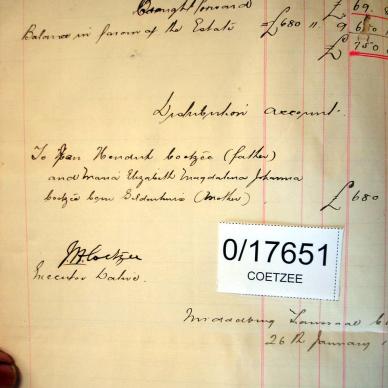 Brought forward £ 69.
Balance in favor of the Estate £680 " 9 680
£ 750
Distribution account.
To Jan Hendrik Coetzée (father)
and Maria Elizabeth Magdalena Johanna
Coetzée born (Mother) £ 680
0/17651
COETZEE
JHCoetzee
Executor Dative.
Middelburg Transvaal
26th January